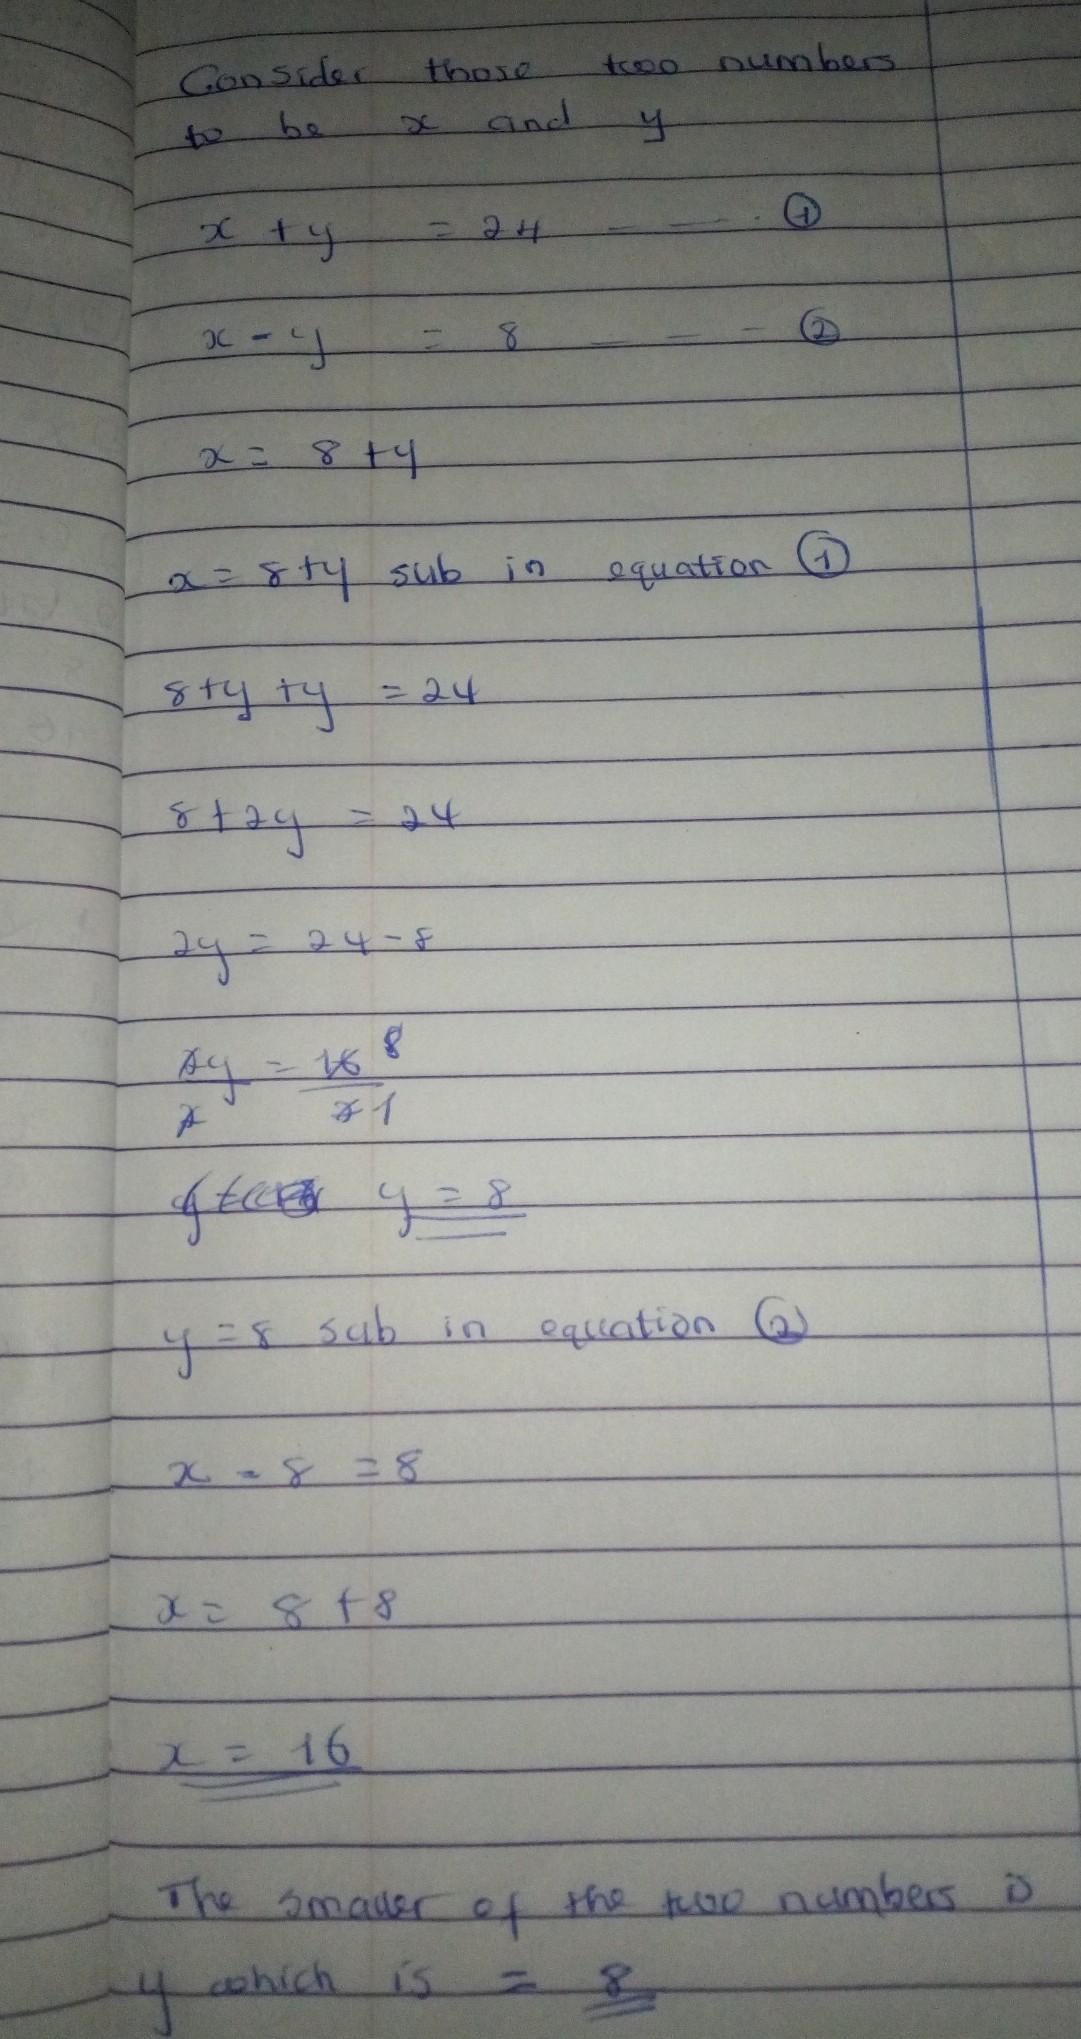 Consider those two numbers
to be x and y
x + y = 24 - - - ①
x - y = 8 - - - ②
x = 8 + y
x = 8 + y sub in equation ①
8 + y + y = 24
8 + 2y = 24
2y = 24 - 8
2y = 16 8
2 2 1
y = 8
y = 8 sub in equation ②
x - 8 = 8
x = 8 + 8
x = 16
The smaller of the two numbers is
y which is = 8